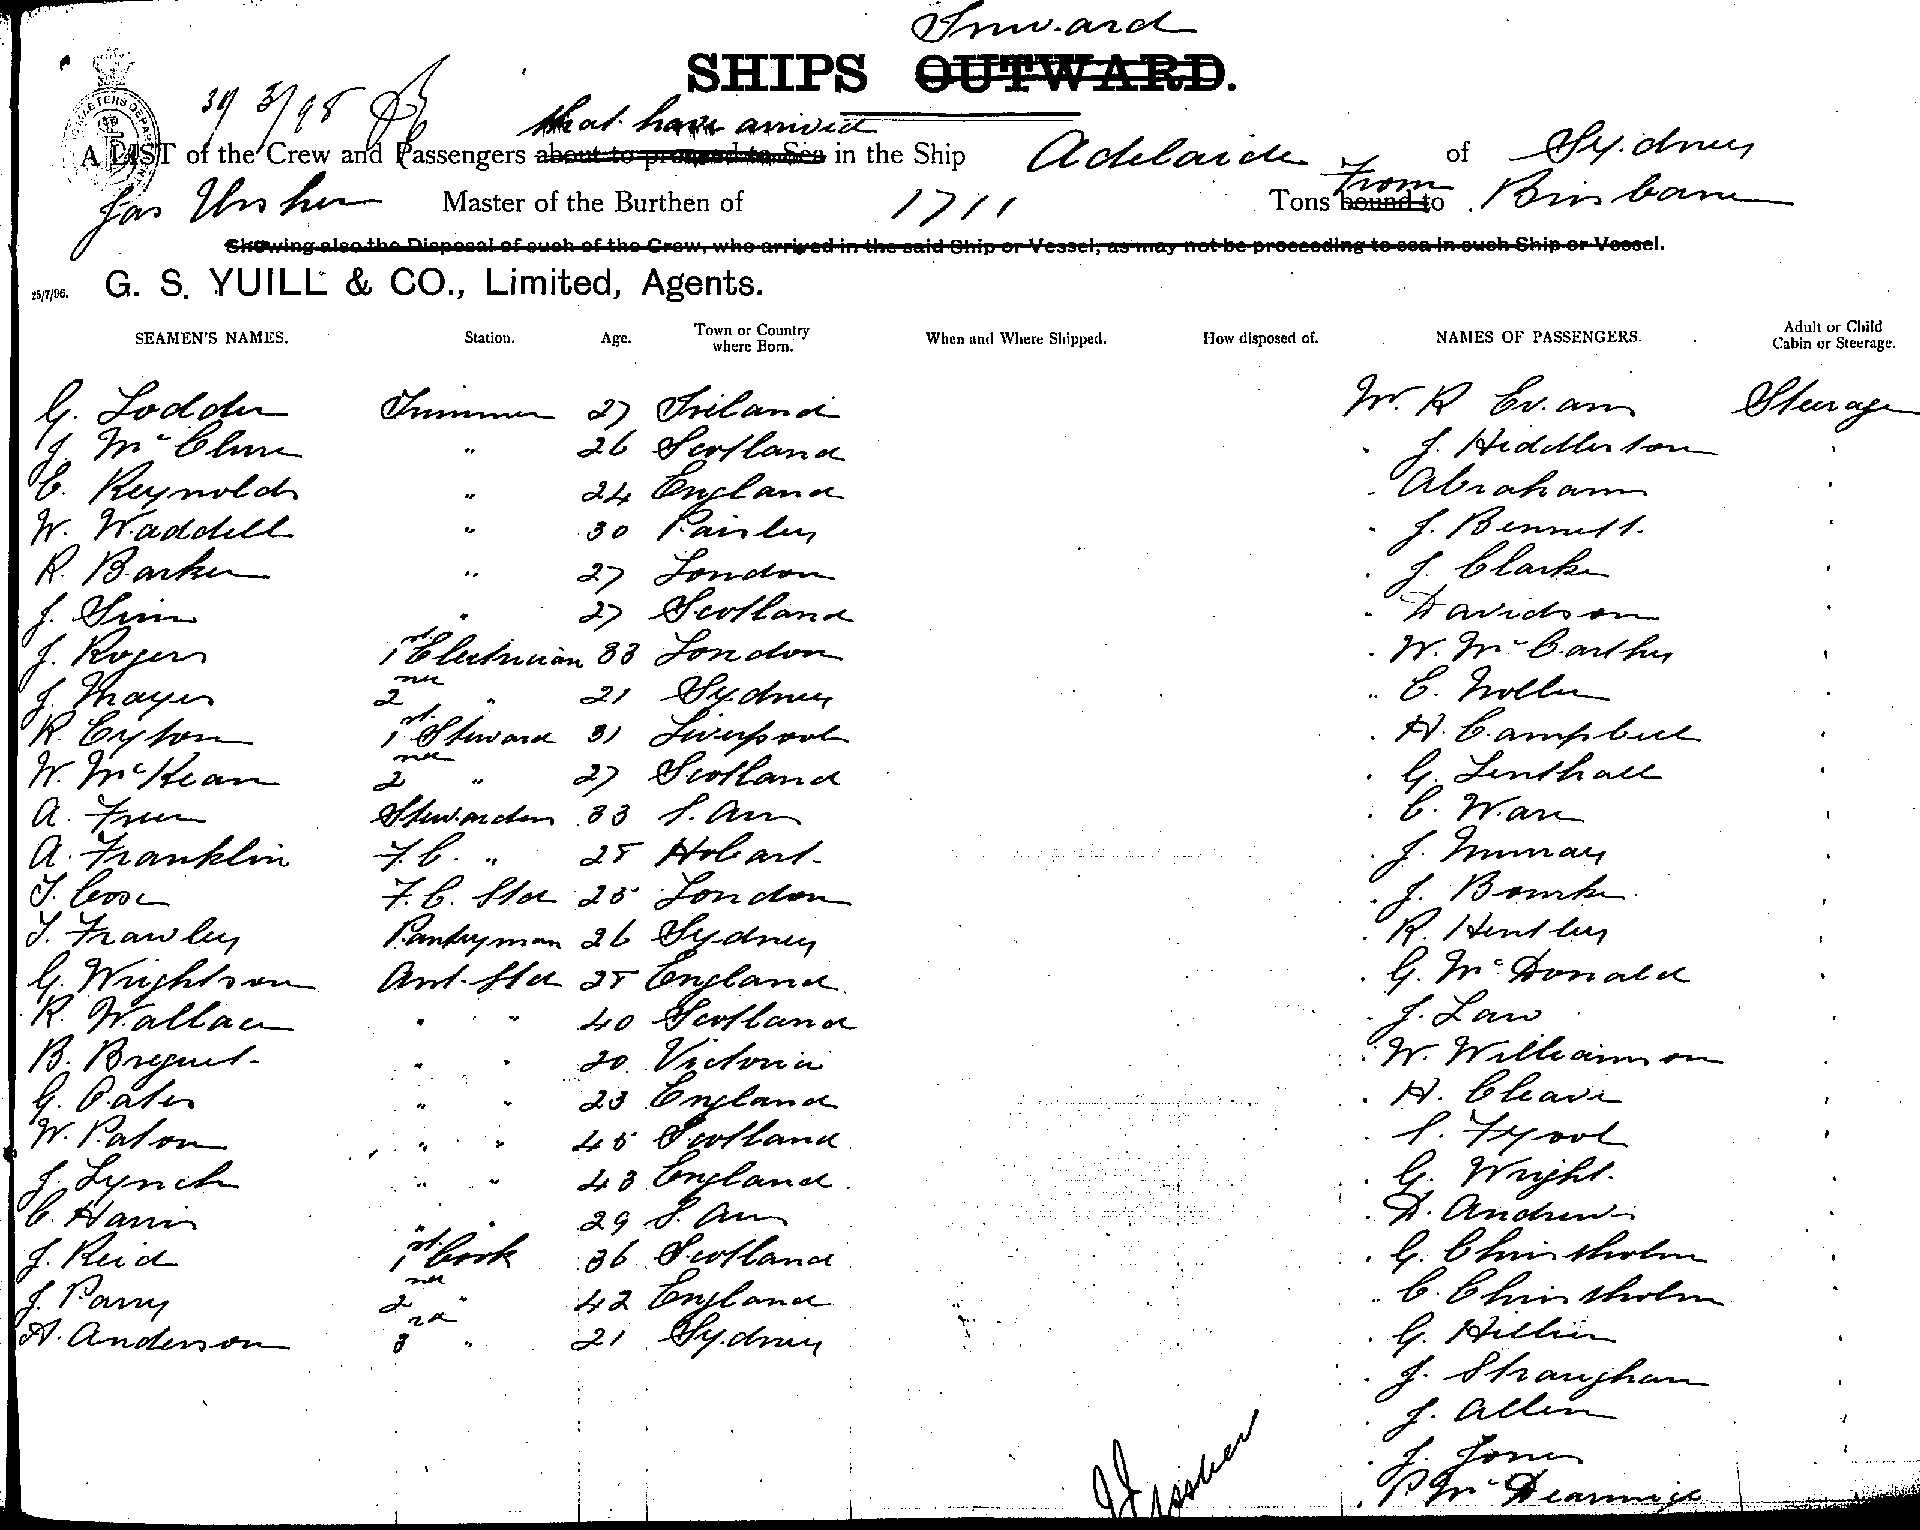 Inward
SHIPS OUTWARD.
that have arrived
A LIST of the Crew and Passengers about to proceed to Sea in the Ship Adelaide of Sydney
from
Jas Ussher Master of the Burthen of 1711 Tons bound to Brisbane
Showing also the Disposal of such of the Crew, who arrived in the said Ship or Vessel, as may not be proceeding to sea in such Ship or Vessel.
25/7/96. G. S. YUILL & CO., Limited, Agents.
SEAMEN'S NAMES. Station. Age. Town or Country where Born. When and Where Shipped. How disposed of. NAMES OF PASSENGERS. Adult or Child Cabin or Steerage.
G. Lodder Trimmer 27 Ireland W. R Evans Steerage
J. McClure " 26 Scotland J. Hiddleston
C. Reynolds " 24 England Abraham
W. Waddell " 30 Paisley J. Bennett.
R. Barker " 27 London J. Clarke
J. Sim " 27 Scotland Davidson
J. Rogers 1st Electrician 33 London W. McCarthy
J. Mayer 2nd " 21 Sydney C. Noller
R. Cyton 1st Steward 31 Liverpool H. Campbell
W. McKean 2nd " 27 Scotland G. Lenthall
A. Freer Stewardess 33 S. Aus C. Ware
A. Franklin F. C. " 28 Hobart J. Murray
T. Coose F. C. Std 25 London J. Bourke
T. Frawley Pantryman 26 Sydney R. Hentley
G. Wrightson Asst. Std 28 England G. McDonald
R. Wallace " " 40 Scotland J. Law
B. Breguet " " 20 Victoria W. Williamson
G. Oates " " 23 England H. Cleave
W. Paton " " 45 Scotland S. Fypol
J. Lynch " " 43 England G. Wright.
C. Harris " " 29 S. Aus D. Andrews
J. Reid 1st Cook 36 Scotland G. Chrisholm
J. Parry 2nd " 42 England C. Chrisholm
A. Anderson 3rd " 21 Sydney G. Hillier
J. Straughan
J. Allen
J. Jones
P McDearmid
J Ussher